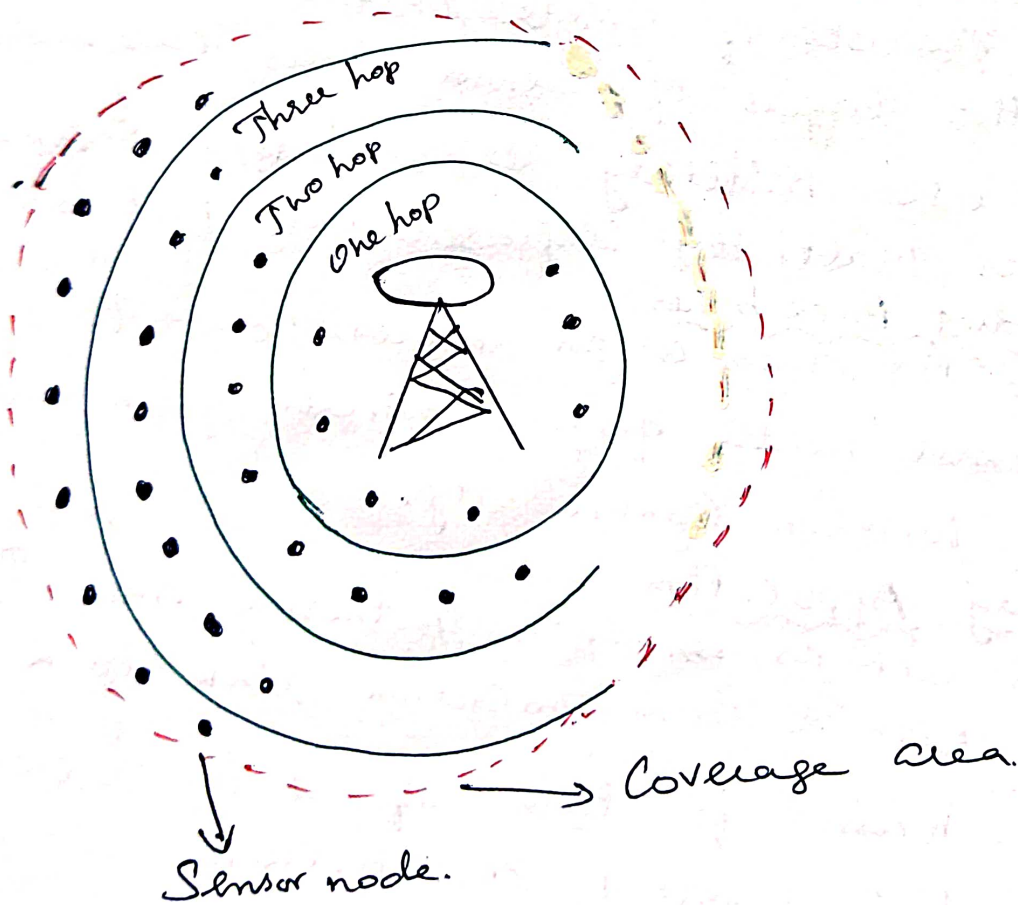 Three hop
Two hop
One hop
Coverage area.
Sensor node.